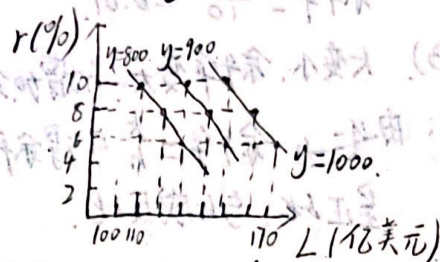 r(%)
y=800 y=900
10
8
6
4
2
y=1000.
100 110 170 L(亿美元)